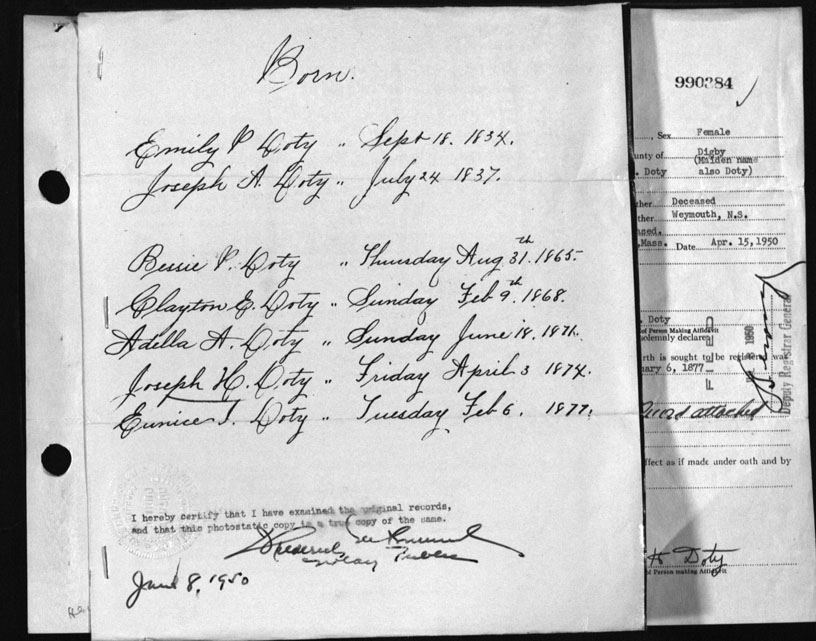 Born.
Emily V. Doty " Sept 18. 1834.
Joseph A. Doty " July 24 1837.
Bessie V. Doty " Thursday Aug 31.th 1865.
Clayton E. Doty " Sunday Feb 9.th 1868.
Adella A. Doty " Sunday June 18. 1871.
Joseph H. Doty " Friday April 3 1874.
Eunice I. Doty " Tuesday Feb 6. 1877.
I hereby certify that I have examined the original records,
and that this photostatic copy is a true copy of the same.
Frederick
Notary Public
June 8, 1950
990384
, Sex Female
unty of Digby
(Maiden name
. Doty also Doty)
ther Deceased
ther Weymouth, N.S.
ased.
.Mass. Date Apr. 15, 1950
. Doty
of Person Making Affidavit
olemnly declare:
rth is sought to be registered was
uary 6, 1877
1950
Deputy Registrar General
attached
ffect as if made under oath and by
H Doty
of Person making Affidavit